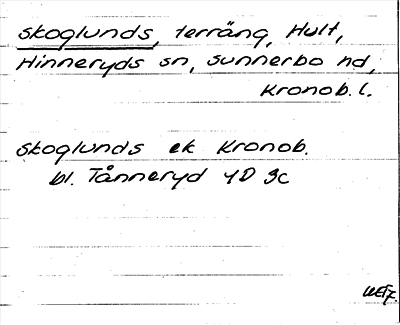 skoglunds, terräng, Hult,
Hinneryds sn, sunnerbo hd,
Kronob. l.
skoglunds ek Kronob.
bl. Tånneryd 4D 9c